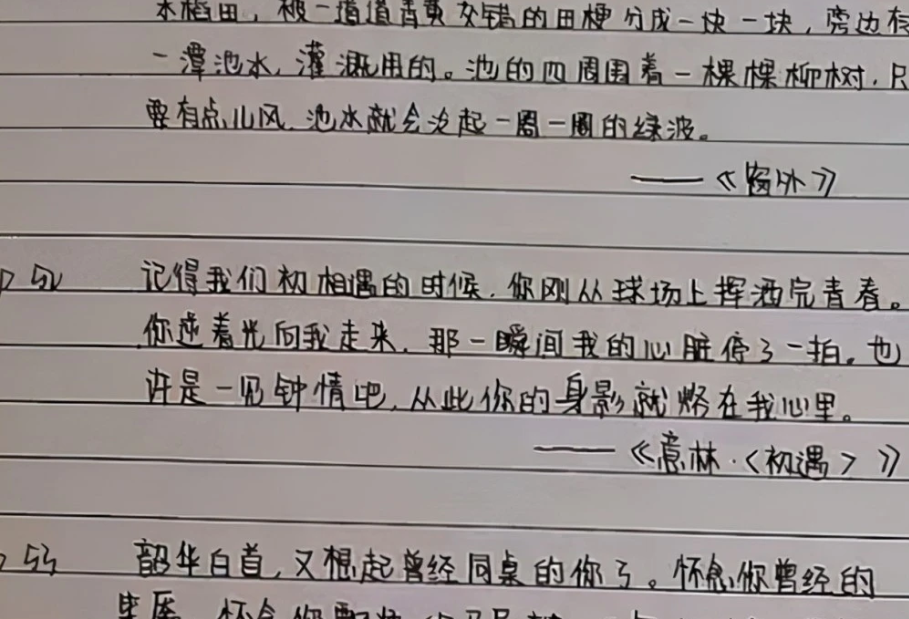 水稻田，被一道道青黄交错的田埂分成一块一块，旁边有
一潭池水，灌溉用的。池的四周围着一棵棵柳树，只
要有点儿风，池水就会泛起一圈一圈的绿波。
——《窗外》
P 52 记得我们初相遇的时候，你刚从球场上挥洒完青春。
你逆着光向我走来，那一瞬间我的心脏停了一拍。也
许是一见钟情吧，从此你的身影就烙在我心里。
——《意林·〈初遇〉》
P 53 韶华白首，又想起曾经同桌的你了。怀念你曾经的
怀念你